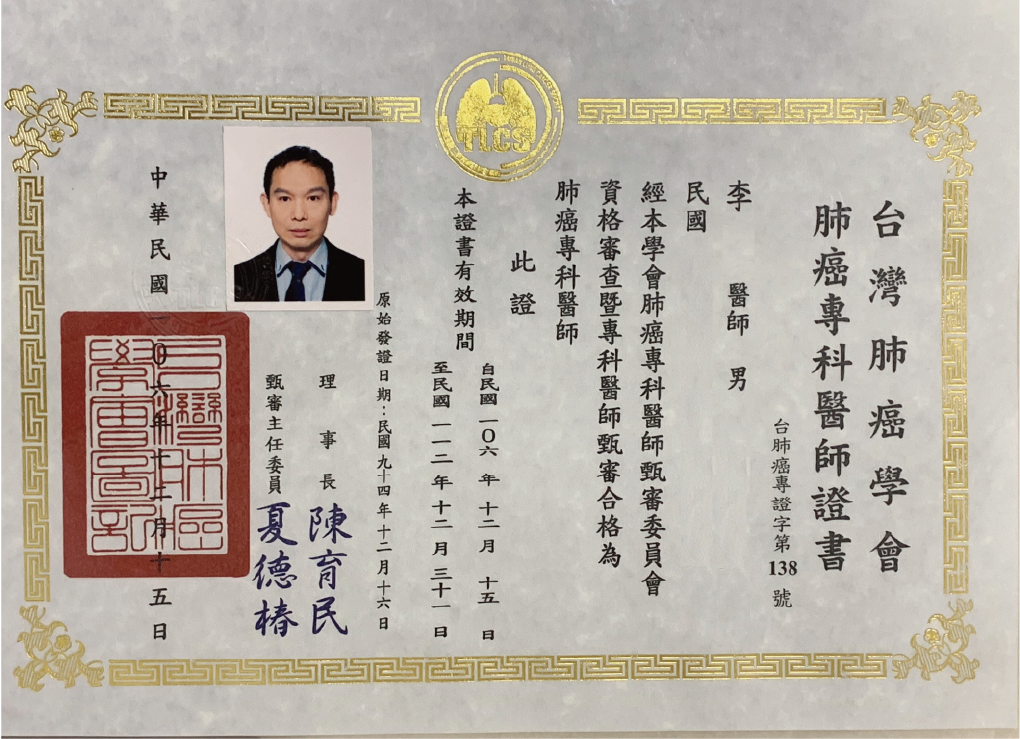 台灣肺癌學會
肺癌專科醫師證書
台肺癌專證字第138號
李 醫師 男
民國
經本學會肺癌專科醫師甄審委員會
資格審查暨專科醫師甄審合格為
肺癌專科醫師
此證
本證書有效期間
自民國一〇六年十二月十五日
至民國一一二年十二月三十一日
原始發證日期：民國九十四年十二月十六日
理事長 陳育民
甄審主任委員 夏德椿
中華民國一〇六年十二月十五日
TLCS